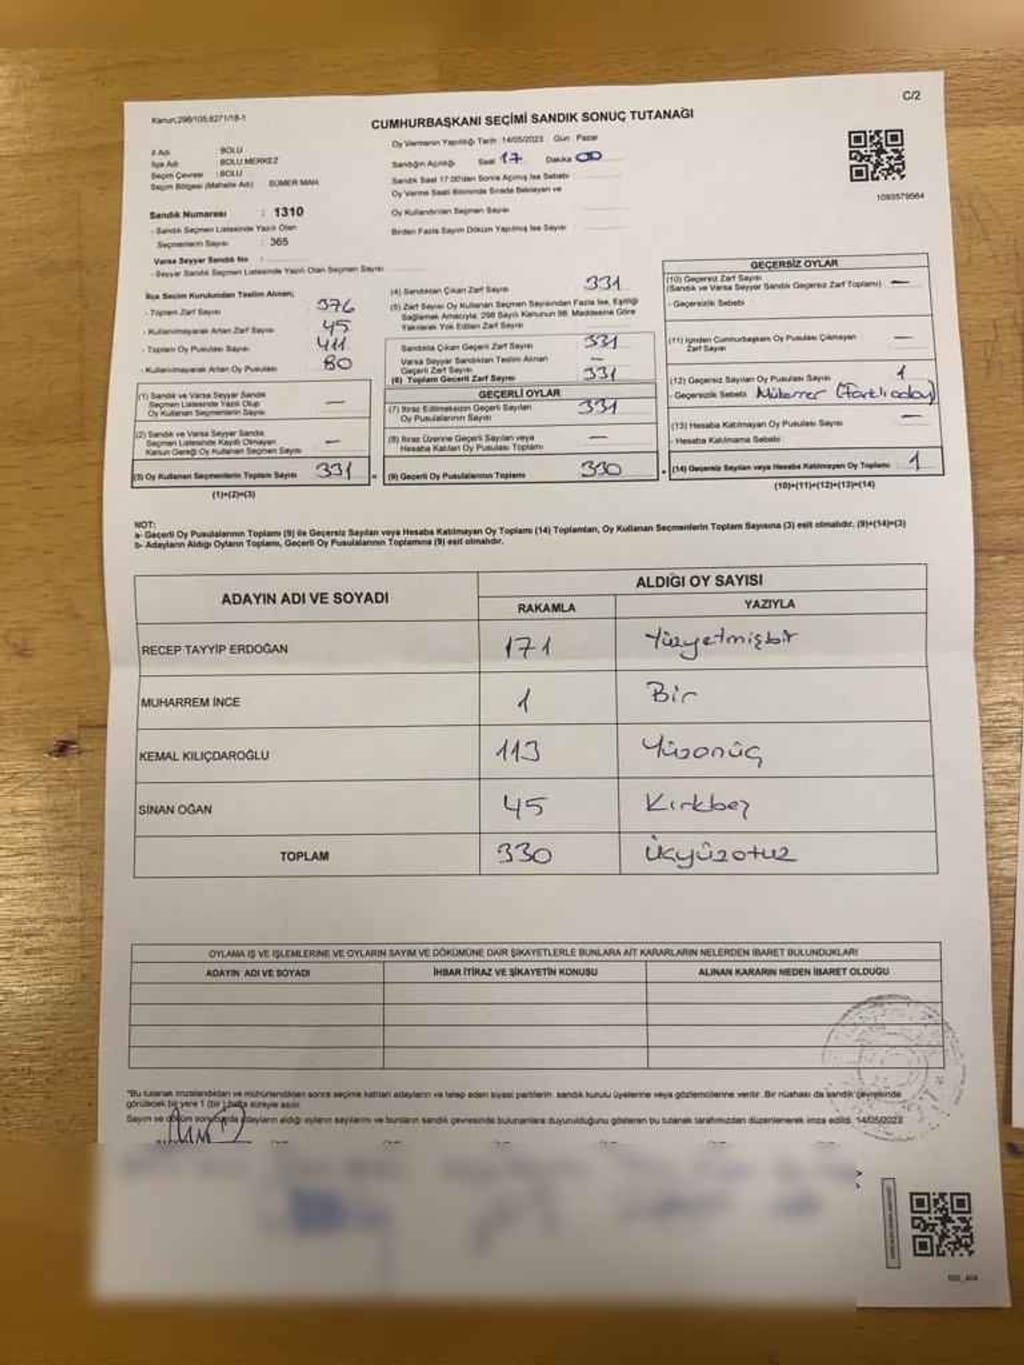 C/2
Kanun;298/105;6271/18-1
CUMHURBAŞKANI SEÇİMİ SANDIK SONUÇ TUTANAĞI
Oy Vermenin Yapıldığı Tarih 14/05/2023 Gün : Pazar
İl Adı : BOLU
İlçe Adı : BOLU MERKEZ
Seçim Çevresi : BOLU
Seçim Bölgesi (Mahalle Adı) SÜMER MAH.
Sandığın Açıldığı Saat 17 Dakika 00
Sandık Saat 17.00'den Sonra Açılmış İse Sebebi
Oy Verme Saati Bitiminde Sırada Bekleyen ve
Oy Kullandırılan Seçmen Sayısı
Birden Fazla Sayım Döküm Yapılmış İse Sayısı
1093579564
Sandık Numarası : 1310
- Sandık Seçmen Listesinde Yazılı Olan
Seçmenlerin Sayısı : 365
Varsa Seyyar Sandık No :
- Seyyar Sandık Seçmen Listesinde Yazılı Olan Seçmen Sayısı
İlçe Seçim Kurulundan Teslim Alınan;
- Toplam Zarf Sayısı 376
- Kullanılmayarak Artan Zarf Sayısı 45
- Toplam Oy Pusulası Sayısı 411
- Kullanılmayarak Artan Oy Pusulası 80
(1) Sandık ve Varsa Seyyar Sandık
Seçmen Listesinde Yazılı Olup
Oy Kullanan Seçmenlerin Sayısı —
(2) Sandık ve Varsa Seyyar Sandık
Seçmen Listesinde Kayıtlı Olmayan
Kanun Gereği Oy Kullanan Seçmen Sayısı —
(3) Oy Kullanan Seçmenlerin Toplam Sayısı 331
(1)+(2)=(3)
(4) Sandıktan Çıkan Zarf Sayısı 331
(5) Zarf Sayısı Oy Kullanan Seçmen Sayısından Fazla İse, Eşitliği
Sağlamak Amacıyla; 298 Sayılı Kanunun 98. Maddesine Göre
Yakılarak Yok Edilen Zarf Sayısı
Sandıkta Çıkan Geçerli Zarf Sayısı 331
Varsa Seyyar Sandıktan Teslim Alınan
Geçerli Zarf Sayısı —
(6) Toplam Geçerli Zarf Sayısı 331
GEÇERLİ OYLAR
(7) İtiraz Edilmeksizin Geçerli Sayılan
Oy Pusulalarının Sayısı 331
(8) İtiraz Üzerine Geçerli Sayılan veya
Hesaba Katılan Oy Pusulası Toplamı —
(9) Geçerli Oy Pusulalarının Toplamı 330
GEÇERSİZ OYLAR
(10) Geçersiz Zarf Sayısı
(Sandık ve Varsa Seyyar Sandık Geçersiz Zarf Toplamı) —
- Geçersizlik Sebebi
(11) İçinden Cumhurbaşkanı Oy Pusulası Çıkmayan
Zarf Sayısı —
(12) Geçersiz Sayılan Oy Pusulası Sayısı 1
- Geçersizlik Sebebi Mükerrer (Farklı aday)
(13) Hesaba Katılmayan Oy Pusulası Sayısı —
- Hesaba Katılmama Sebebi
(14) Geçersiz Sayılan veya Hesaba Katılmayan Oy Toplamı 1
(10)+(11)+(12)+(13)=(14)
NOT:
a- Geçerli Oy Pusulalarının Toplamı (9) ile Geçersiz Sayılan veya Hesaba Katılmayan Oy Toplamı (14) Toplamları, Oy Kullanan Seçmenlerin Toplam Sayısına (3) eşit olmalıdır. (9)+(14)=(3)
b- Adayların Aldığı Oyların Toplamı, Geçerli Oy Pusulalarının Toplamına (9) eşit olmalıdır.
ADAYIN ADI VE SOYADI
ALDIĞI OY SAYISI
RAKAMLA YAZIYLA
RECEP TAYYİP ERDOĞAN 171 Yüzyetmişbir
MUHARREM İNCE 1 Bir
KEMAL KILIÇDAROĞLU 113 Yüzonüç
SİNAN OĞAN 45 Kırkbeş
TOPLAM 330 Üçyüzotuz
OYLAMA İŞ VE İŞLEMLERİNE VE OYLARIN SAYIM VE DÖKÜMÜNE DAİR ŞİKAYETLERLE BUNLARA AİT KARARLARIN NELERDEN İBARET BULUNDUKLARI
ADAYIN ADI VE SOYADI İHBAR İTİRAZ VE ŞİKAYETİN KONUSU ALINAN KARARIN NEDEN İBARET OLDUĞU
*Bu tutanak imzalandıktan ve mühürlendikten sonra seçime katılan adayların ve talep eden siyasi partilerin sandık kurulu üyelerine veya gözlemcilerine verilir. Bir nüshası da sandık çevresinde
görülecek bir yere 1 (bir) hafta süreyle asılır.
Sayım ve döküm sonucunda adayların aldığı oyların sayılarını ve bunların sandık çevresinde bulunanlara duyurulduğunu gösteren bu tutanak tarafımızdan düzenlenerek imza edildi. 14/05/2023